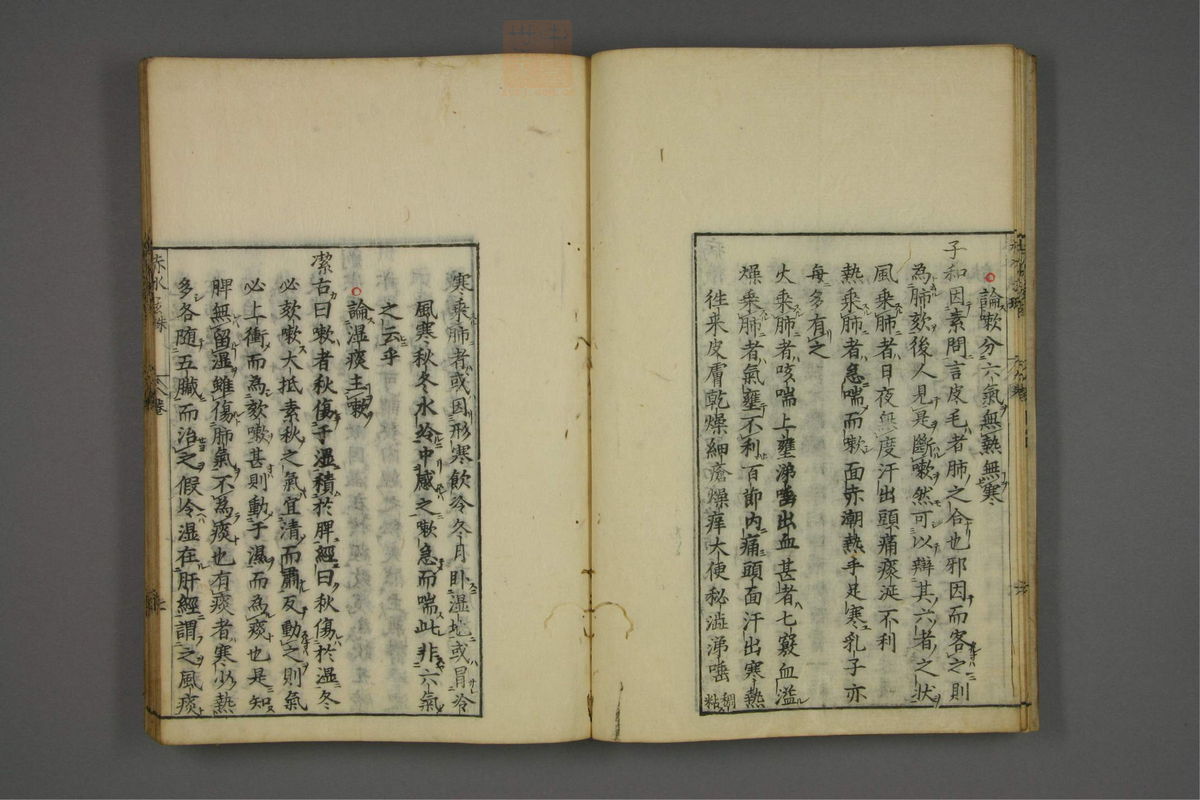 論嗽分六氣無熱無寒
子和因素問言皮毛者肺之合也邪因而客之則
為肺欬後人見是斷嗽然可以辯其六者之狀
風乘肺者日夜無度汗出頭痛痰涎不利
熱乘肺者急喘而嗽面赤潮熱手足寒乳子亦
每多有之
火乘肺者咳喘上壅涕唾出血甚者七竅血溢
燥乘肺者氣壅不利百節內痛頭面汗出寒熱
往来皮膚乾燥細瘡燥痒大便秘澁涕唾稠粘
寒乘肺者或因形寒飲冷冬月卧湿地或冒冷
風寒秋冬水冷中感之嗽急而喘此非六氣
之云乎
論湿痰主嗽
潔古曰嗽者秋傷于湿積於脾經曰秋傷於温冬
必欬嗽大抵素秋之氣宜清而肅反動之則氣
必上衝而為欬嗽甚則動于濕而為痰也是知
脾無留湿雖傷肺氣不為痰也有痰者寒少熱
多各随五臟而治之假令湿在肝經謂之風痰
赤水玄珠